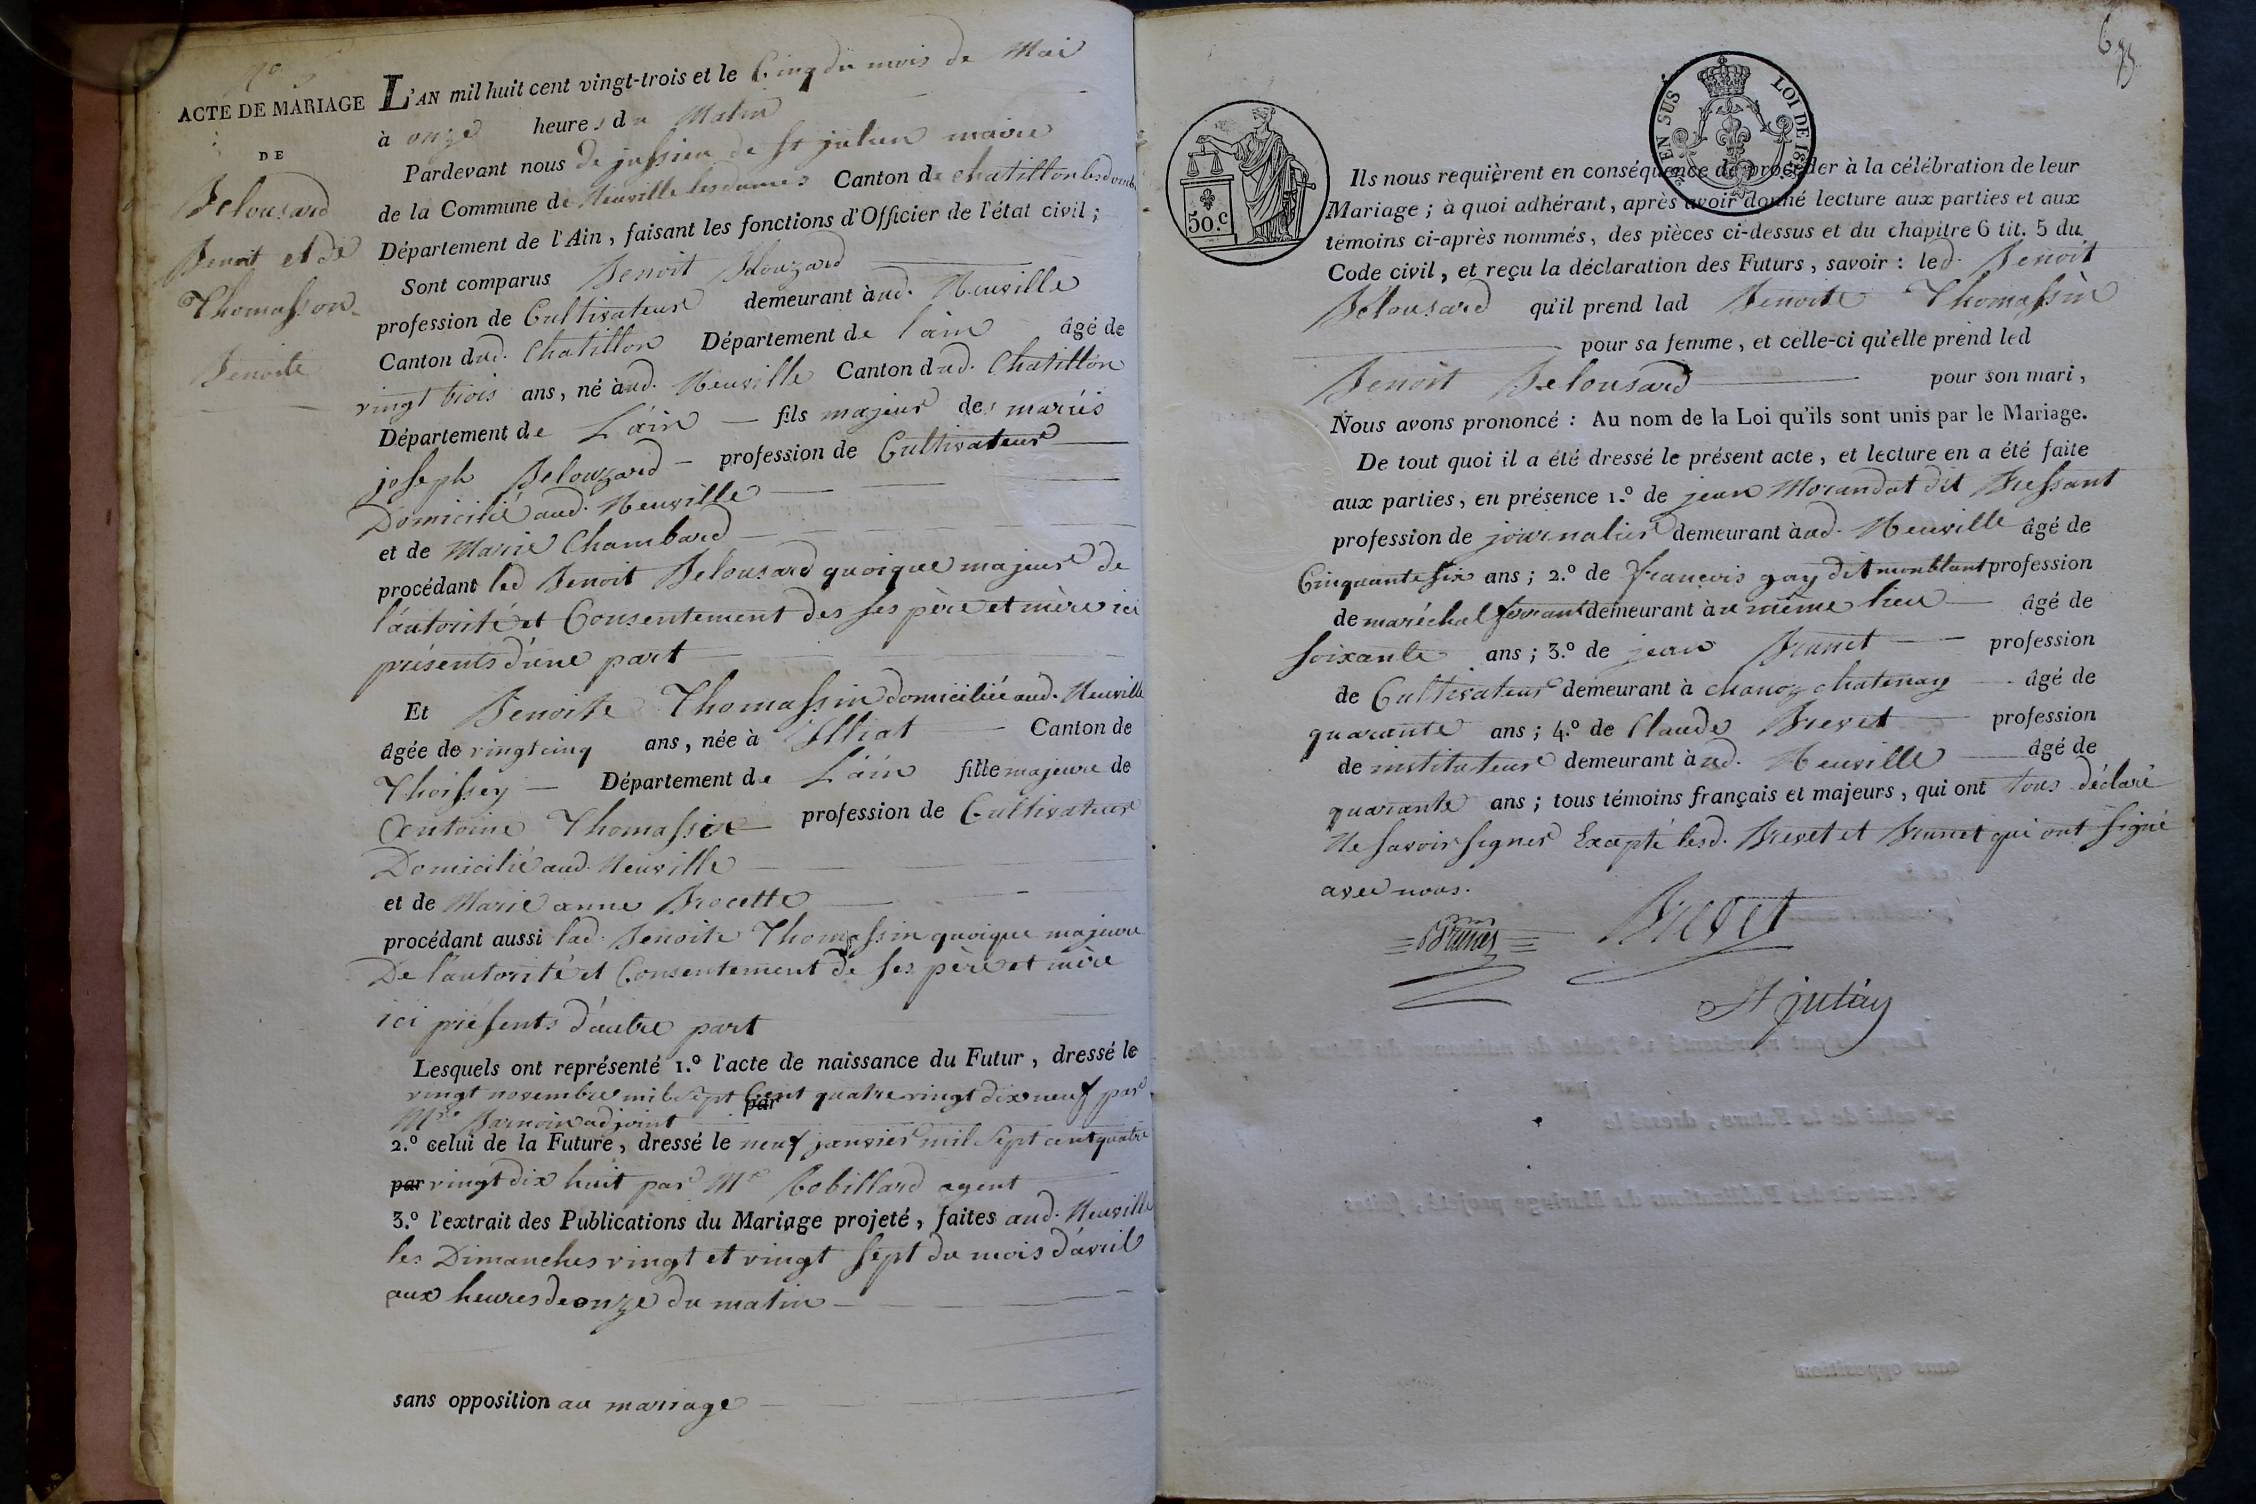 ACTE DE MARIAGE
DE
Belousard
Benoit et de
Thomasson
Benoite
L'AN mil huit cent vingt-trois et le Cinq du mois de Mai
à onze heures du Matin
Pardevant nous de jussieu de St julien maire
de la Commune de Neuville les dames Canton de chatillon les domb
Département de l'Ain, faisant les fonctions d'Officier de l'état civil ;
Sont comparus Benoit Belouzard
profession de Cultivateur demeurant à ud. Neuville
Canton dud. Chatillon Département de l'ain âgé de
vingt trois ans, né àud. Neuville Canton dud. Chatillon
Département de L'ain fils majeur des mariés
joseph Belouzard profession de Cultivateur
Domicilié aud. Neuville
et de Marie Chambard
procédant led Benoit Belousard quoique majeur de
l'autorité et Consentement des ses père et mère ici
présents d'une part
Et Benoite Thomassin domiciliée aud. Neuville
âgée de vingt cinq ans, née à Illiat Canton de
Thoissey Département de L'ain fille majeure de
Antoine Thomassin profession de Cultivateur
Domicilié aud. Neuville
et de Marie anne Brocette
procédant aussi lad. Benoite Thomassin quoique majeure
De l'autorité et Consentement de ses père et mère
ici présents d'autre part
Lesquels ont représenté 1.º l'acte de naissance du Futur, dressé le
vingt novembre mil sept Cent quatre vingt dix neuf par
par
Mre adjoint
2.º celui de la Future, dressé le neuf janvier mil sept cent quatre
par vingt dix huit par Mr Robillard agent
3.º l'extrait des Publications du Mariage projeté, faites aud. Neuville
les Dimanches vingt et vingt sept du mois d'avril
aux heures de onze du matin
sans opposition au mariage
EN SUS
LOI DE
50.c
Ils nous requièrent en conséquence de procéder à la célébration de leur
Mariage ; à quoi adhérant, après avoir donné lecture aux parties et aux
témoins ci-après nommés, des pièces ci-dessus et du chapitre 6 tit. 5 du
Code civil, et reçu la déclaration des Futurs, savoir : led. Benoit
Belousard qu'il prend lad Benoite Thomassin
pour sa femme, et celle-ci qu'elle prend led
Benoit Belousard pour son mari,
Nous avons prononcé : Au nom de la Loi qu'ils sont unis par le Mariage.
De tout quoi il a été dressé le présent acte, et lecture en a été faite
aux parties, en présence 1.º de jean Morandat dit Bressant
profession de journalier demeurant àud. Neuville âgé de
Cinquante six ans ; 2.º de françois gay dit montblant profession
de maréchal ferrant demeurant àu même lieu âgé de
soixante ans ; 3.º de jean Brunet profession
de Cultivateur demeurant à chanoz chatenay âgé de
quarante ans ; 4.º de Claude Brevet profession
de instituteur demeurant àud. Neuville âgé de
quarante ans ; tous témoins français et majeurs, qui ont tous déclaré
Ne savoir signer Excepté lesd. Brevet et Brunet qui ont signé
avec nous.
Brunet Brevet
St julien